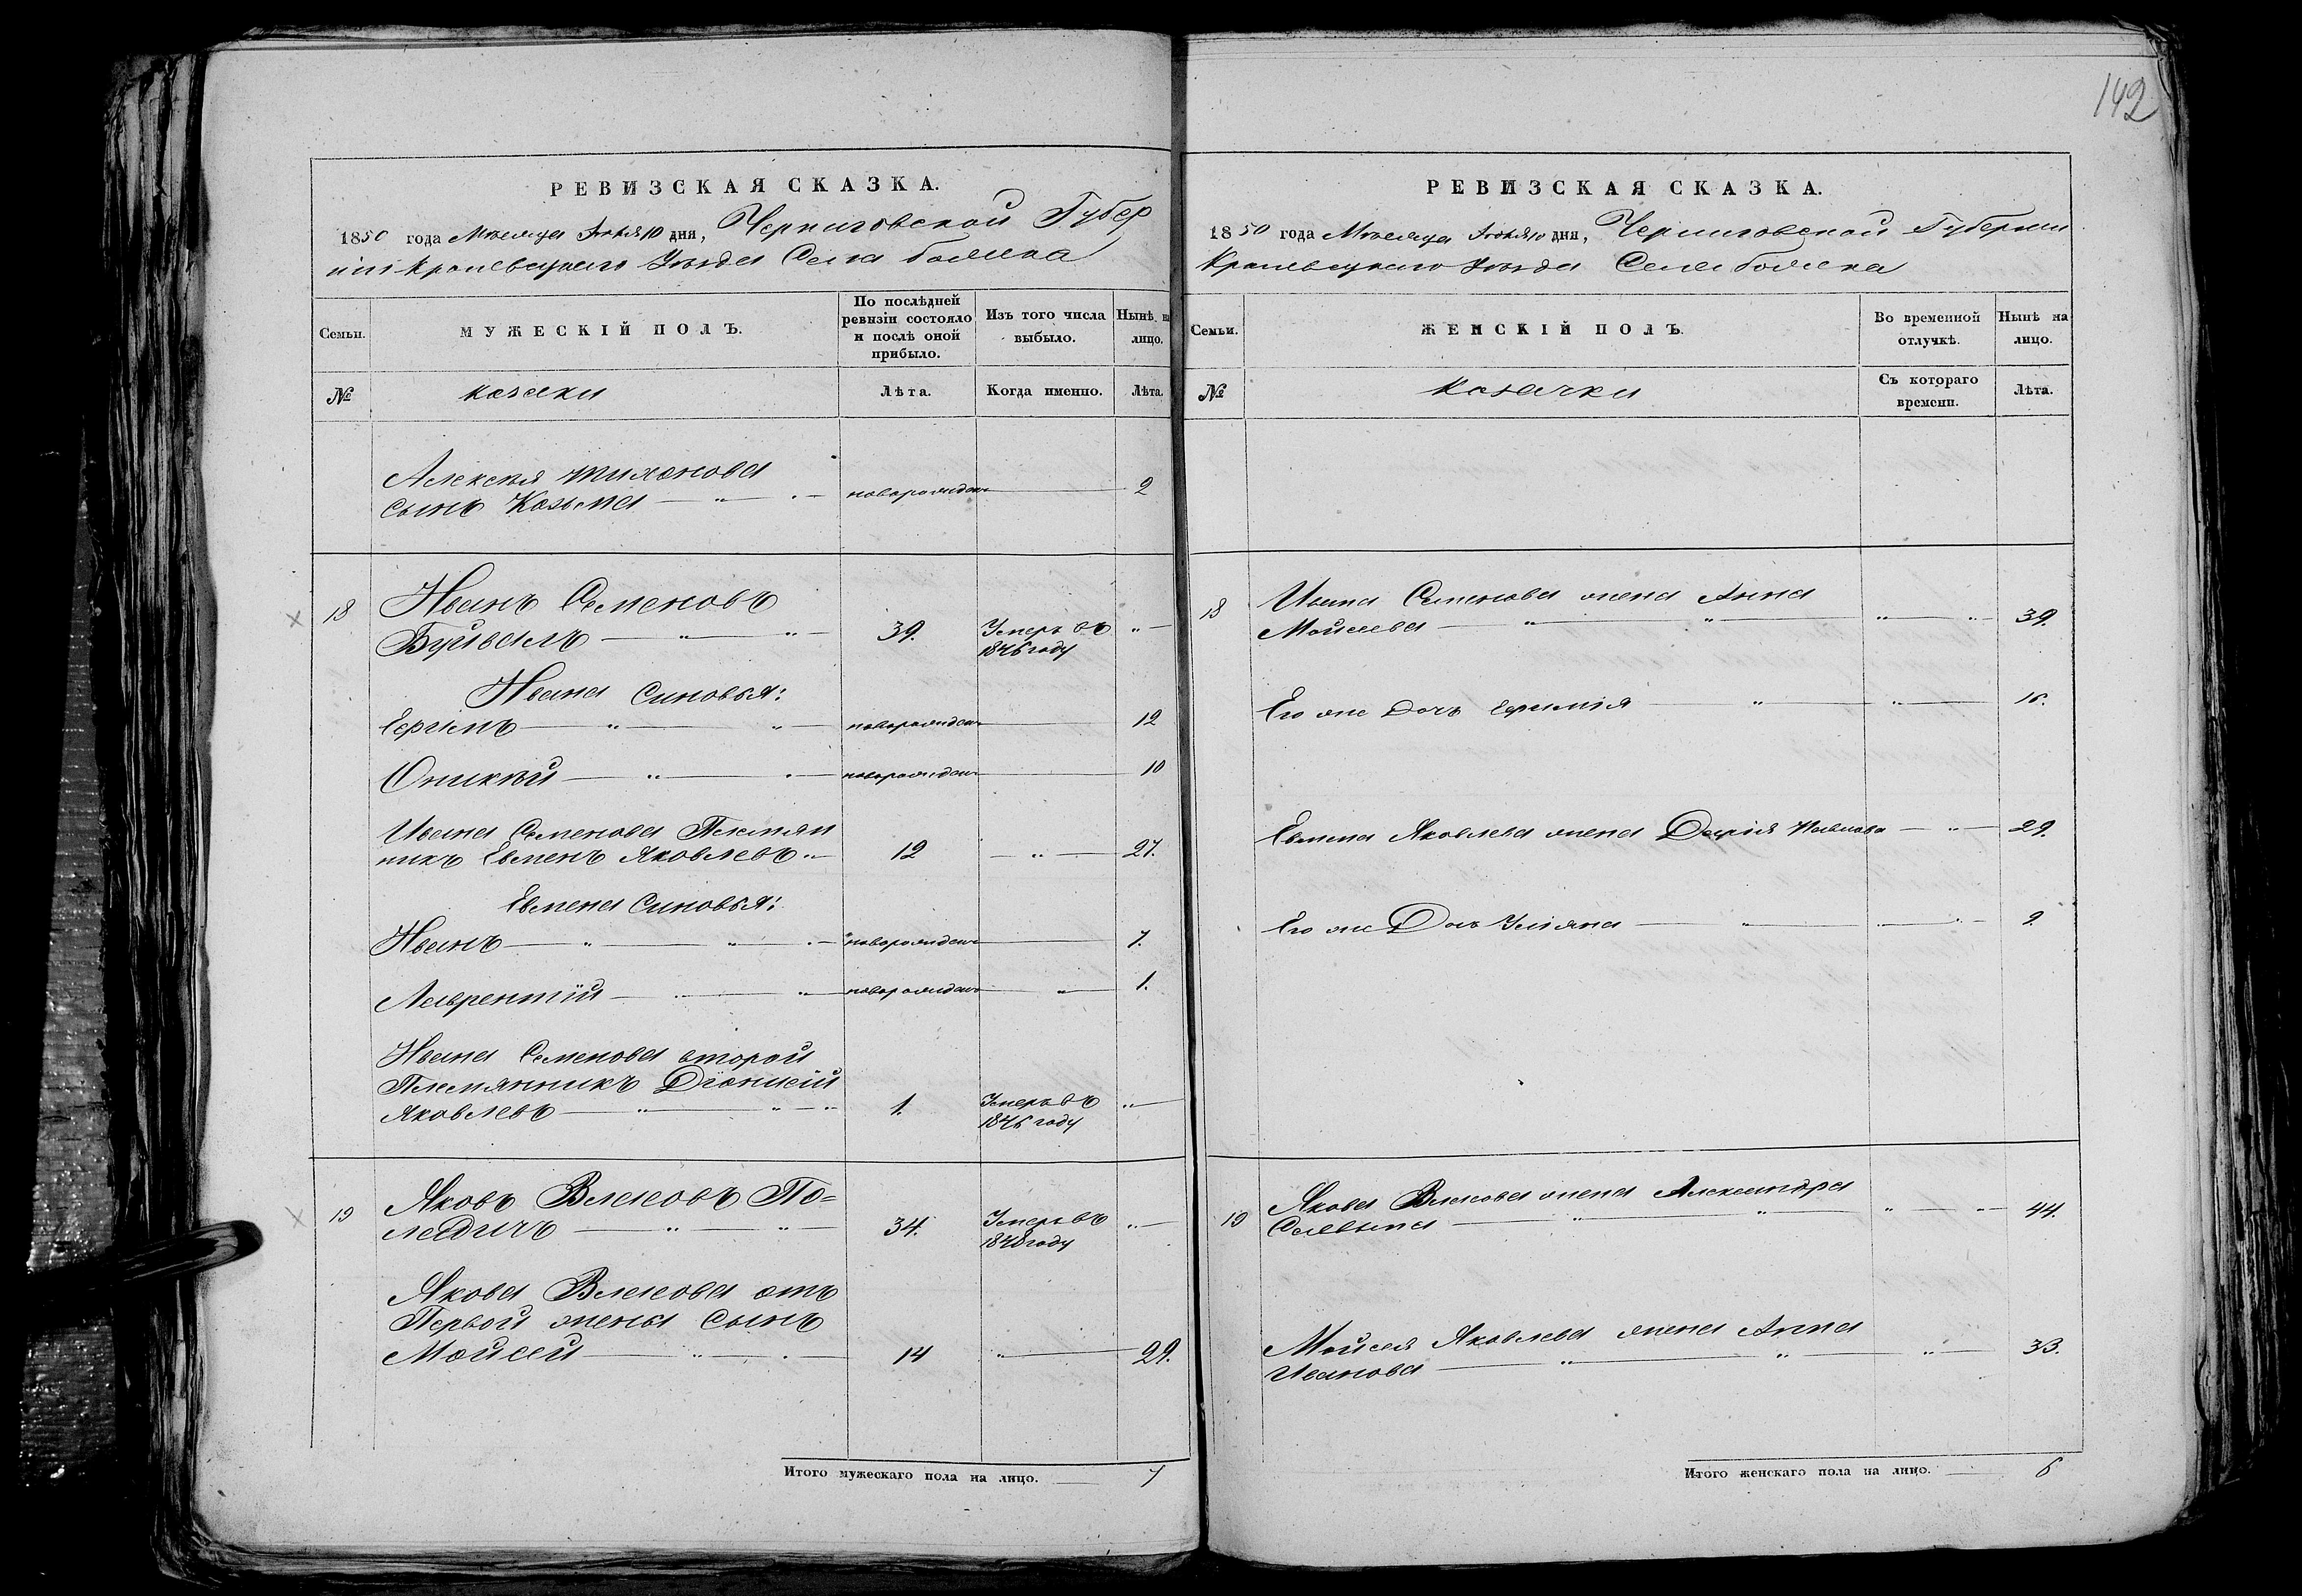 142
РЕВИЗСКАЯ СКАЗКА.
1850 года Месяца 10 дня, Черниговской Губер
ніи Кролевецкаго Уезда Села
Семьи.
МУЖЕСКІЙ ПОЛЪ.
По послѣдней ревизіи состояло и послѣ оной прибыло.
Изъ того числа выбыло.
Нынѣ на лицо.
№
казаки
Лѣта.
Когда именно.
Лѣта.
Алексея Тихонова
сынъ Козьма — новорожден — 2
18 Иванъ Семеновъ
Буйвалъ — 39. Умеръ въ
1846 году
Ивана Синовья:
Ефимъ — новорожден — 12
Оникей — новорожден — 10
Ивана Семенова Племян
никъ Евменъ Яковлевъ 12 — 27.
Евмена Синовья:
Иванъ — новорожден — 7.
Лаврентій — новорожден — 1.
Ивана Семенова второй
Племянникъ Діонисій
Яковлевъ — 1. Умеръ въ
1846 году
19 Яковъ Власовъ По=
ледичъ — 34. Умеръ въ
1848 году
Якова Власова отъ
Первой жены Сынъ
Мойсей — 14 — 29.
Итого мужескаго пола на лицо. — 7
РЕВИЗСКАЯ СКАЗКА.
1850 года Месяца 10 дня, Черниговской Губернии
Кролевецкаго Уезда Села
Семьи.
ЖЕНСКІЙ ПОЛЪ.
Во временной отлучкѣ.
Нынѣ на лицо.
№
Козачки
Съ котораго времени.
Лѣта.
18 Ивана Семенова жена Анна
Мойсеева — 39.
Его же Дочъ Ефимія — 16.
Евмена Яковлева жена Дарія Павлова — 29.
Его же Дочъ Уліяна — 2
19 Якова Власова жена Александра
Саввына — 44.
Мойсея Яковлева жена Анна
Иванова — 33.
Итого женскаго пола на лицо. — 6